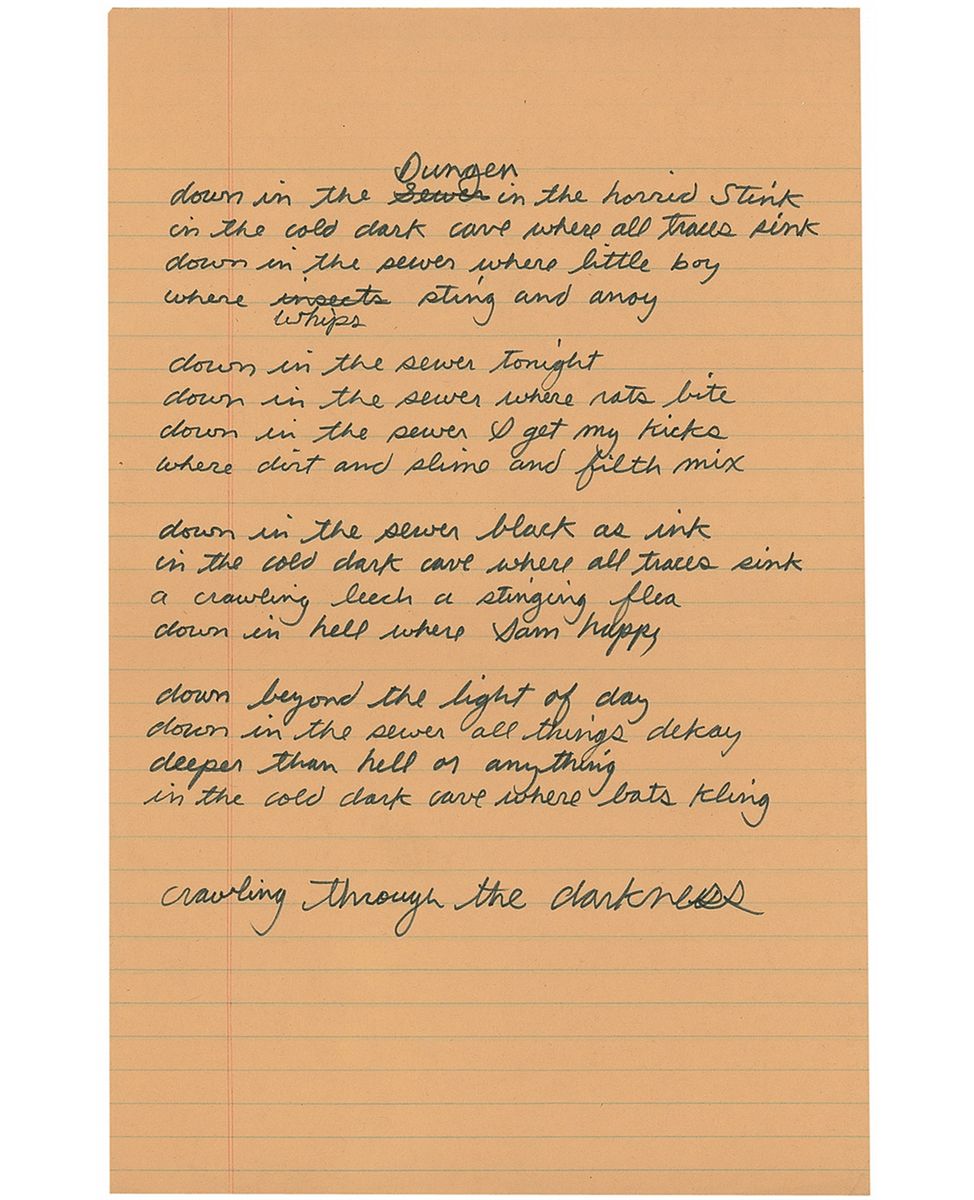 Dungen
down in the Sewer in the horrid Stink
in the cold dark cave where all traces sink
down in the sewer where little boy
where insects sting and anoy
whips
down in the sewer tonight
down in the sewer where rats bite
down in the sewer I get my kicks
where dirt and slime and filth mix
down in the sewer black as ink
in the cold dark cave where all traces sink
a crawling leech a stinging flea
down in hell where Sam happy
down beyond the light of day
down in the sewer all things dekay
deeper than hell or anything
in the cold dark cave where bats kling
crawling through the darkness